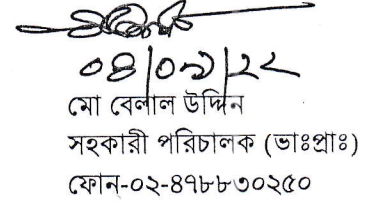 ০৪/০৯/২২
মো বেলাল উদ্দিন
সহকারী পরিচালক (ভাঃপ্রাঃ)
ফোন-০২-৪৭৮৮৩০২৫০